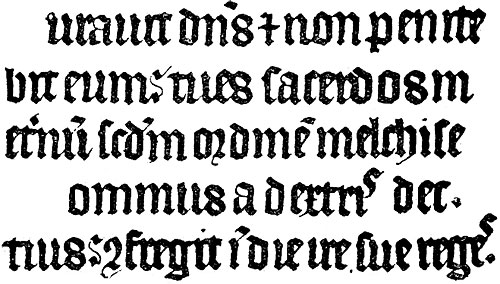 urauit dn̄s ⁊ non penite
bit eum: tu es sacerdos in
et̄nū scd̄m ordinē melchise
ominus a dextris dec.
tuus: ꝯfregit ī die ire sue reges.